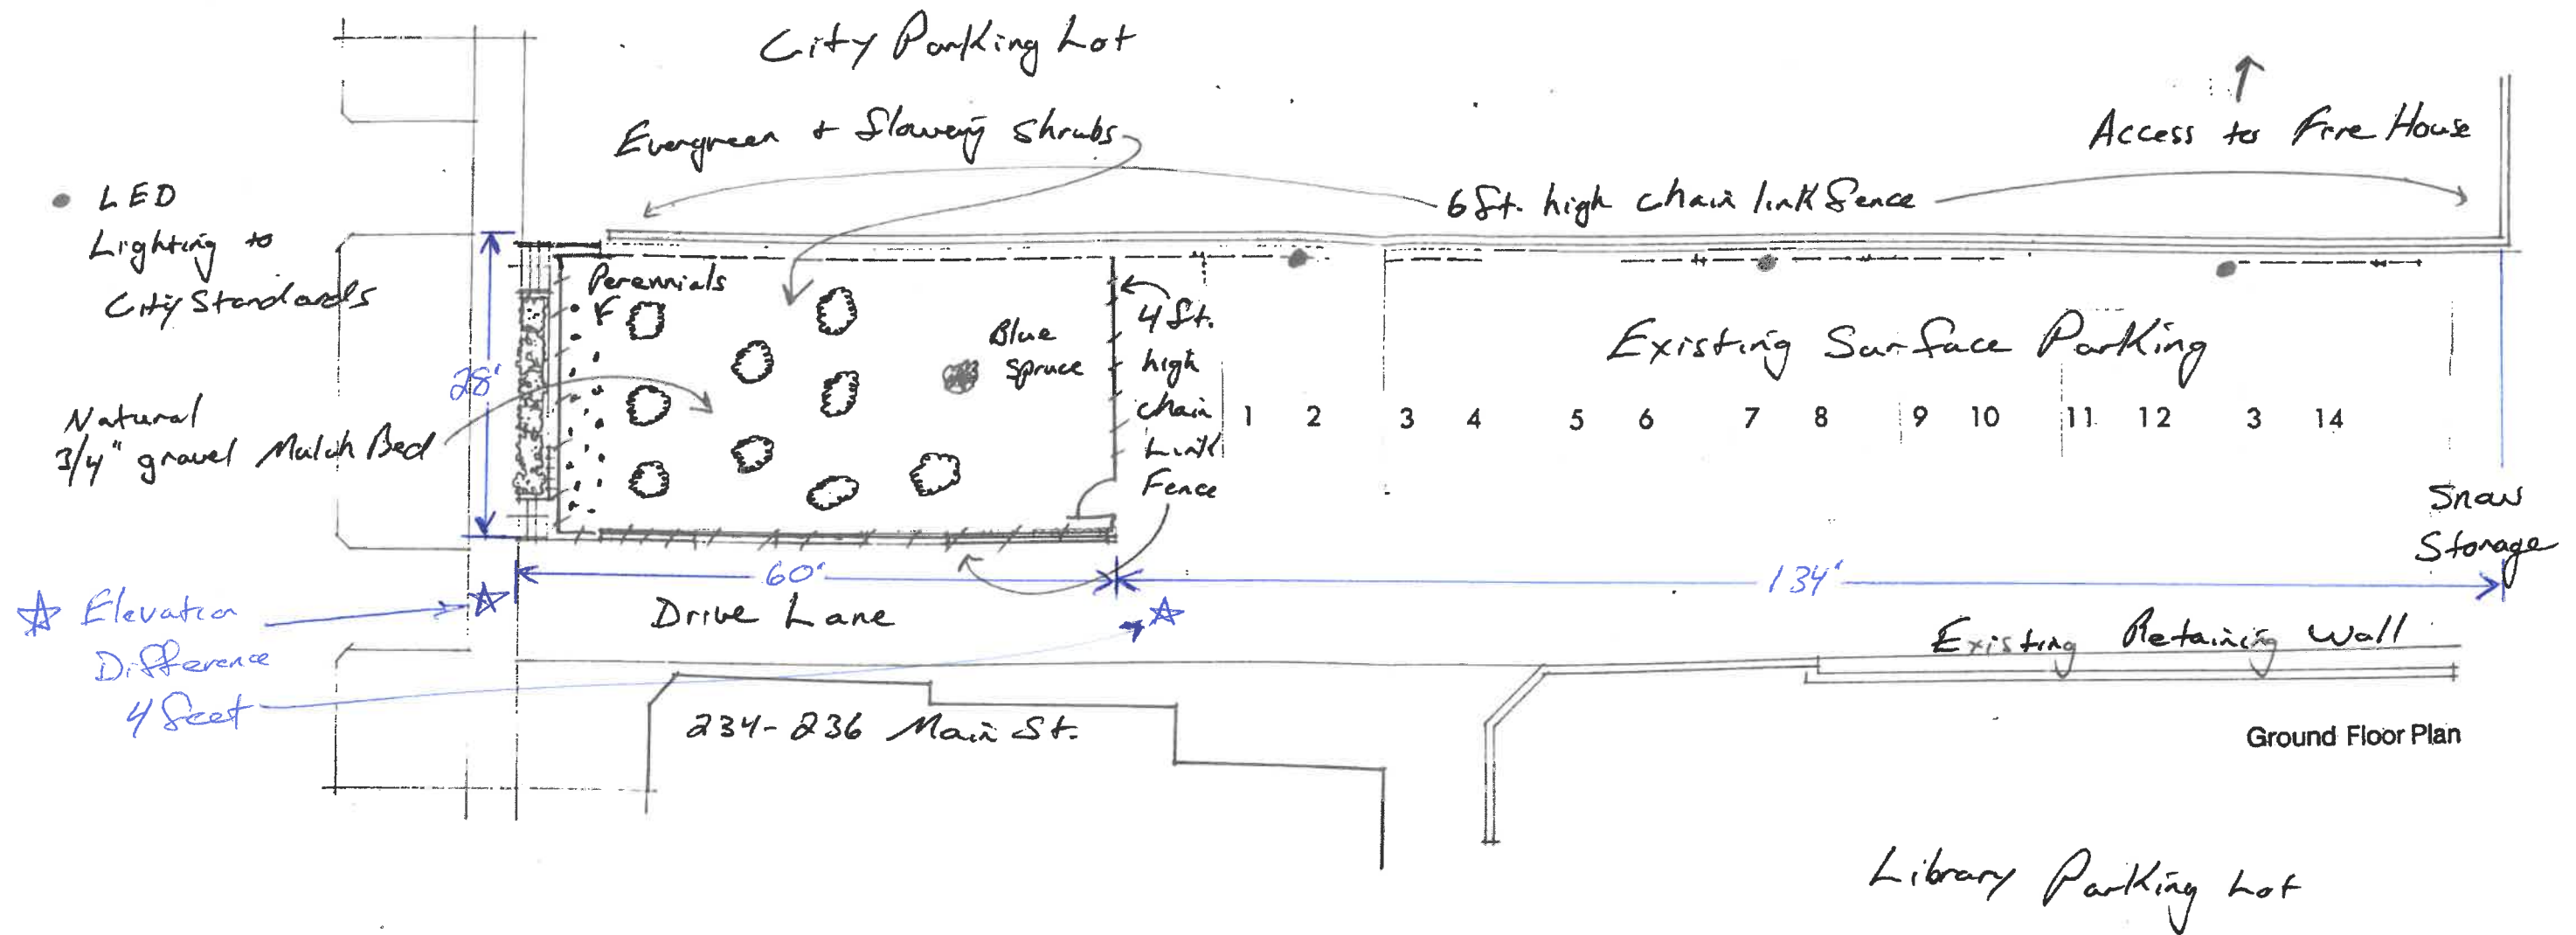 City Parking Lot
Evergreen + flowering shrubs
Access to Fire House
LED
Lighting to
City Standards
6 ft. high chain link fence
Perennials
4 ft.
high
chain
Link
Fence
Blue
Spruce
Existing Surface Parking
28'
Natural
3/4" gravel Mulch Bed
1 2 3 4 5 6 7 8 9 10 11 12 3 14
Snow
Storage
60'
134'
Elevation
Difference
4 feet
Drive Lane
Existing Retaining Wall
234-236 Main St.
Ground Floor Plan
Library Parking Lot